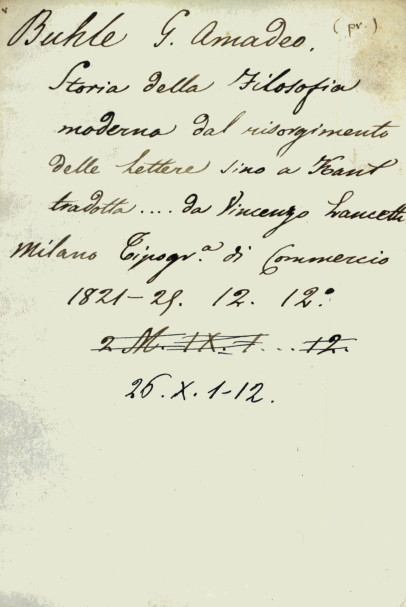 Buhle G. Amadeo. (pr.)
Storia della Filosofia
moderna dal risorgimento
delle lettere sino a Kant
tradotta .... da Vincenzo Lancetti
Milano Tipogr.ª di Commercio
1821-25. 12. 12.º
2 M. IX. 1 ... 12.
26. X. 1-12.